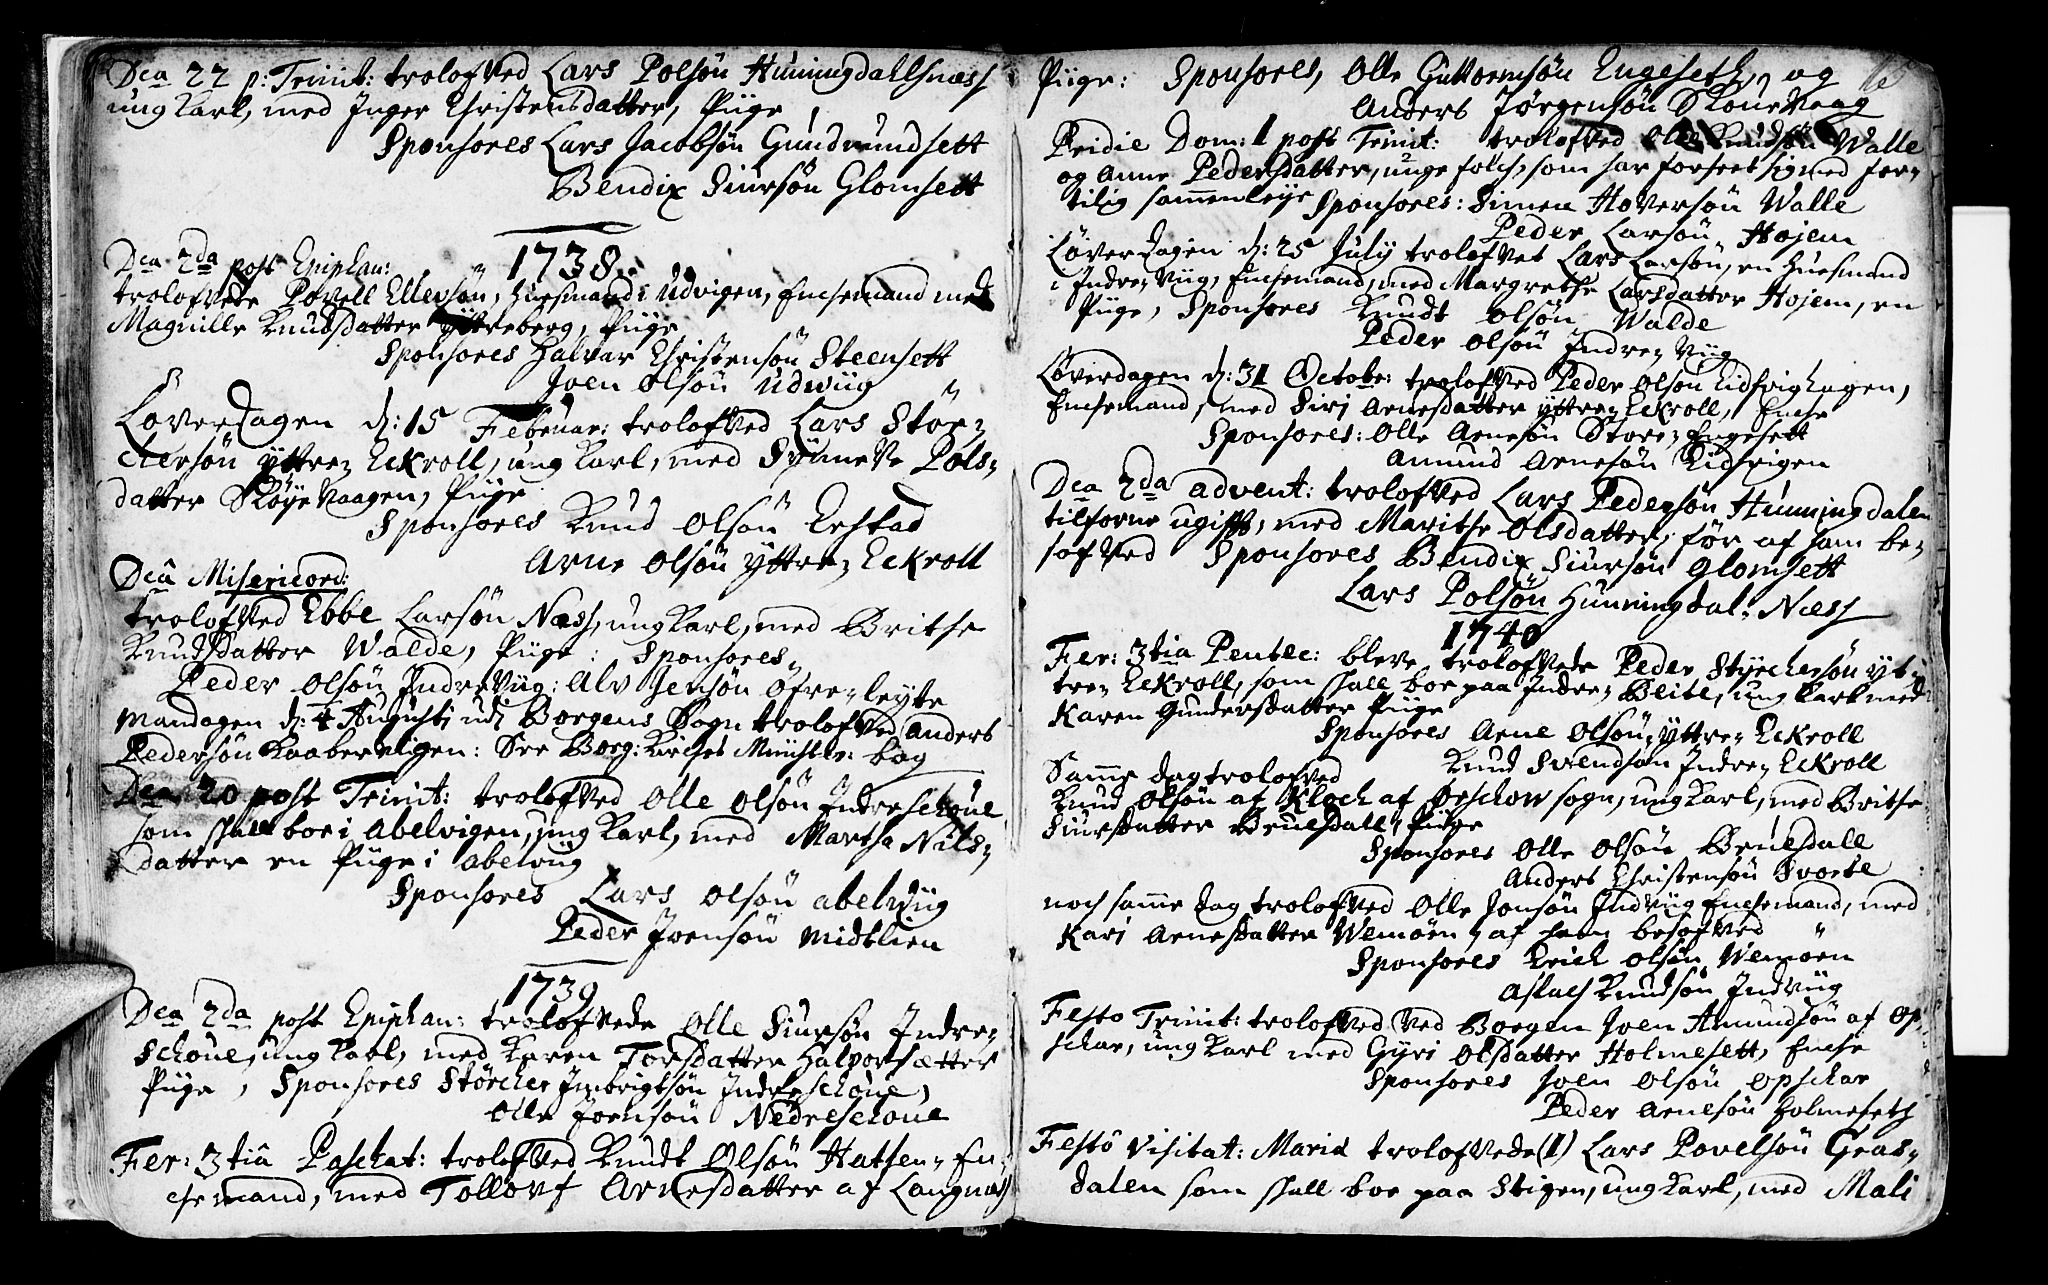 Dca 22 p: Trinit: trolofved Lars Polsøn Hunningdahlsnæss
ung karl, med Inger Christensdatter, Piige
Sponsores Lars Jacobsøn Gundmundsett
Bendix Siursøn Glomsett
1738.
Dca 2da post Epiphan:
trolofvede Povell Ellersøn, Huusmand i Udvigen, Enchemand med
Magnille Knudsdatter Yttreberg, Piige
Sponsores Halvar Christensøn Steensett
Joen Olsøn Udwiig
Løverdagen d: 15 Februar: trolofved Lars Stør-
chersøn Yttre Eckroll, ung karl, med Synneve Pols-
datter Skøyevaagen, Piige
Sponsores Knud Olsøn Erstad
Arne Olsøn Yttre Eckroll
Dca Misericord:
trolofved Ebbe Larsøn Næss, ung karl, med Brithe
Knudsdatter Walde, Piige: Sponsores
Peder Olsøn Indreviig: Alv Jensøn Øfre-leyte
Mandagen d: 4 Augusti udi Borgens Sogn trolofved Anders
Pedersøn Kaabervigen: See Borg: Kirches Ministr: bog
Dca 20 post Trinit: trolofved Olle Olsøn Indreschoue
som skall boe i Abelvigen, ung karl, med Martha Nils-
datter en Piige i Abelviig
Sponsores Lars Olsøn Abelwiig
Peder Joensøn Midtlien
1739
Dca 2da post Epiphan: trolofvede Olle Siursøn Indre-
schoue, ung karl, med Karen Torsdatter Halvorsætter
Piige, Sponsores Størcher Imbrigtsøn Indreschoue,
Olle Joensøn Nedreschoue
Fer: 3tia Paschat: trolofved Knudt Olsøn Hatlen, En-
chemand, med Tollovf Arnesdatter af Langnæss
Piige: Sponsores, Olle Guttormsøn Engeseth, og
Anders Jørgensøn Skouevaag
Pridie Dom: 1 post Trinit: trolofved Olle Knudsøn Walle
og Anne Pedersdatter, unge folch, som har forseet sig med for-
tilig sammenleye Sponsores: Simen Hoversøn Walle
Peder Larsøn Hojem
Løverdagen d: 25 July trolofvet Lars Larsøn, en Huusmand
i Indre Viig, Enchemand, med Margrethe Larsdatter Hojem, en
Piige, Sponsores Knudt Olsøn Walde
Peder Olsøn Indre Viig
Løverdagen d: 31 Octobr: trolofved Peder Olsøn Lidsvighagen,
Enchemand, med Siri Arnesdatter Yttre Eckroll, Enche
Sponsores: Olle Arnesøn Store Engesett
Amund Arnesøn Lidsvigen
Dca 2da Advent: trolofved Lars Pedersøn Hunningdalen
tilforne ugift, med Marithe Olsdatter, før af ham be-
sofved Sponsores Bendix Siursøn Glomsett
Lars Polsøn Hunningdal: Næss
1740
Fer: 3tia Pentec: bleve trolofvede Peder Styrchersøn Yt-
tre Eckroll, som skall boe paa Indre Bleite, ung karl med
Karen Gundersdatter Piige
Sponsores Arne Olsøn Yttre Eckroll
Knud Svendsøn Indre Eckroll
Samme dag trolofved
Knud Olsøn af Kloch af Ørschow sogn, ung karl, med Brithe
Siursdatter Bruesdall, Piige
Sponsores Olle Olsøn Bruesdall
Anders Christensøn Svorte
noch samme dag trolofved Olle Jonsøn Indviig Enchemand, med
Kari Arnesdatter Wemøen, af ham besofved
Sponsores Erich Olsøn Wemøen
Aslach Knudsøn Indviig
Festo Trinit: trolofved ved Borgen Joen Amundsøn af Op-
schar, ung karl med Gyri Olsdatter Holmesett, Enche
Sponsores Joen Olsøn Opschar
Peder Arnesøn Holmeseth
Festo Visitat: Mariæ trolofvede (1) Lars Povelsøn Gras-
dalen som skall boe paa Stigen, ung karl, med Mali